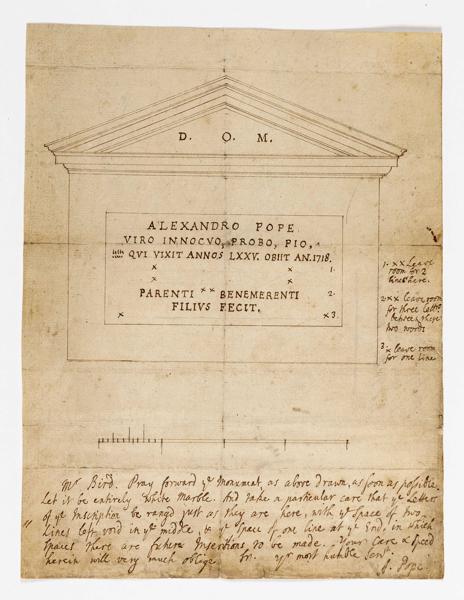 D. O. M.
ALEXANDRO POPE
VIRO INNOCVO, PROBO, PIO,
QVI VIXIT ANNOS LXXV. OBIIT AN. 1718.
x x 1.
x x
PARENTI xx BENEMERENTI 2.
FILIVS FECIT.
x x3.
1. xx Leave
room for 2
lines here.
2. xx leave room
for three Lettrs
between these
two words
3. x leave room
for one line
Mr Bird. Pray forward ye Monument, as above drawn, as soon as possible.
Let it be entirely White Marble. And take a particular care that ye Letters
of ye Inscription be rangd just as they are here, with ye Space of two
Lines left void in ye middle, & ye Space of one line at ye End, in which
Spaces there are future Insertions to be made. Your Care & Speed
herein will very much oblige Sr. yr most humble Servt.
A. Pope